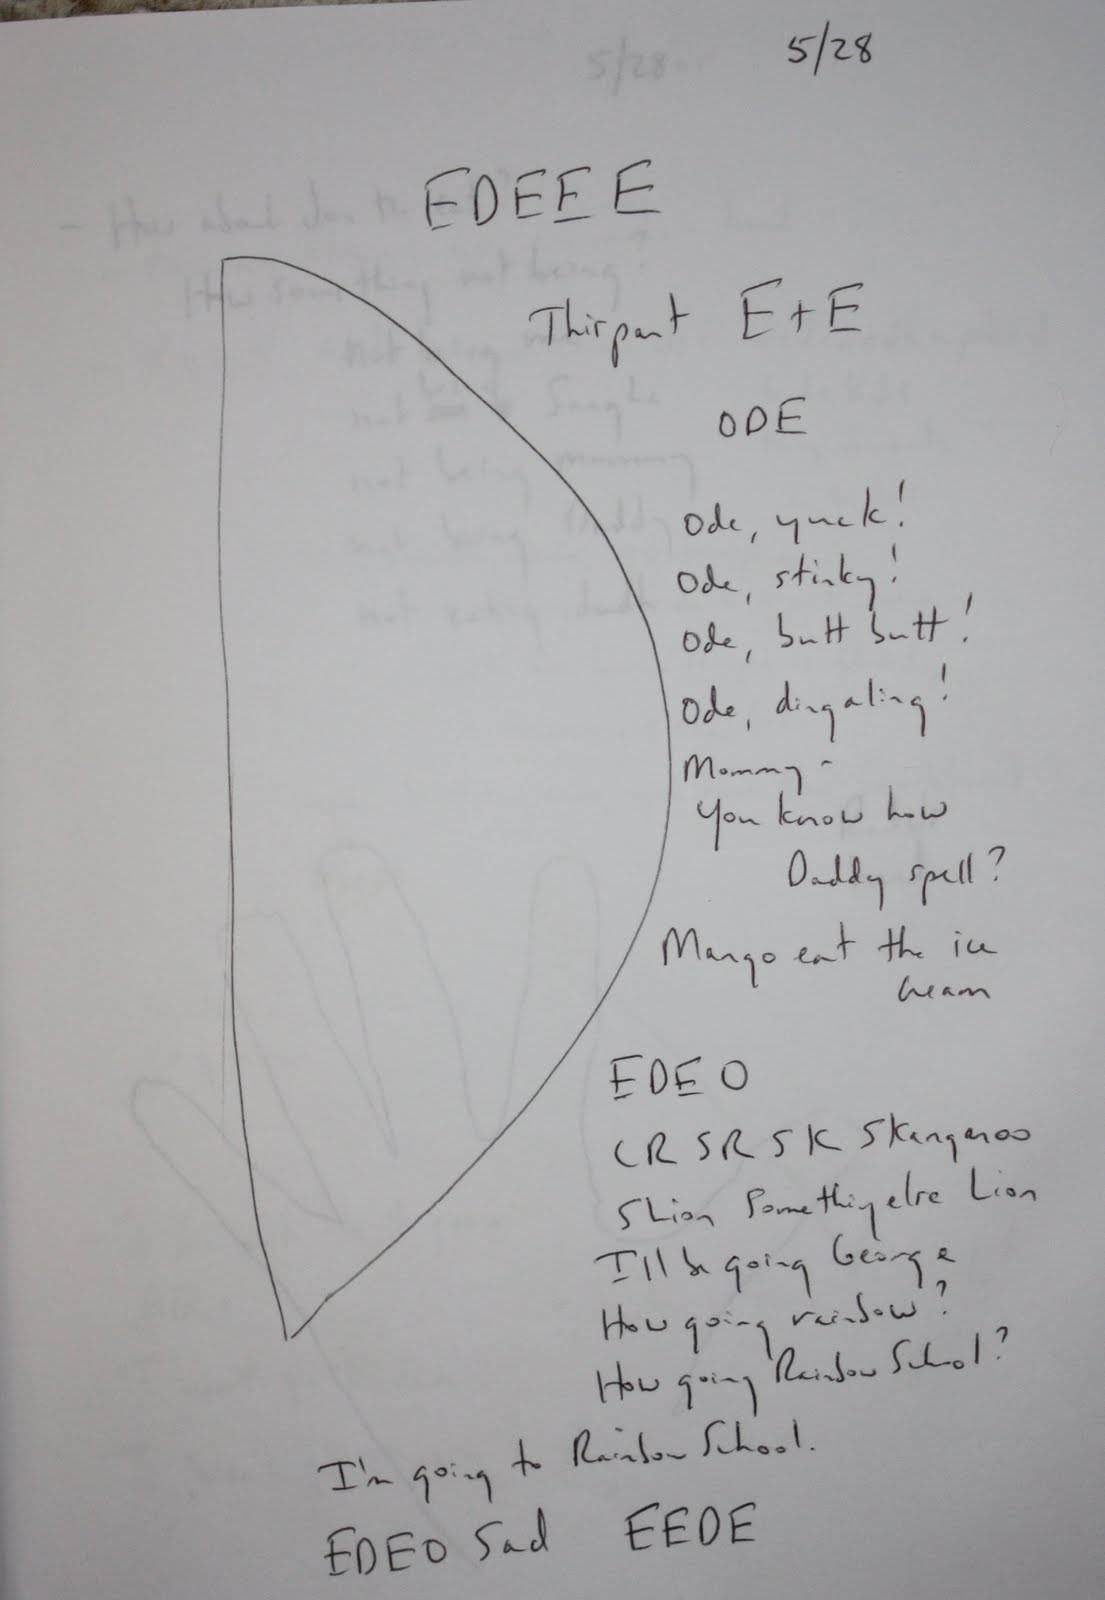 5/28
EDEEE
Thirpant E+E
ODE
Ode, yuck!
Ode, stinky!
Ode, butt butt!
Ode, dingaling!
Mommy -
You know how
Daddy spell?
Mango eat the ice
cream
EDEO
CR SR SK SKangaroo
SLion Something else Lion
I'll be going George
How going rainbow?
How going Rainbow School?
I'm going to Rainbow School.
EDEO Sad EEDE